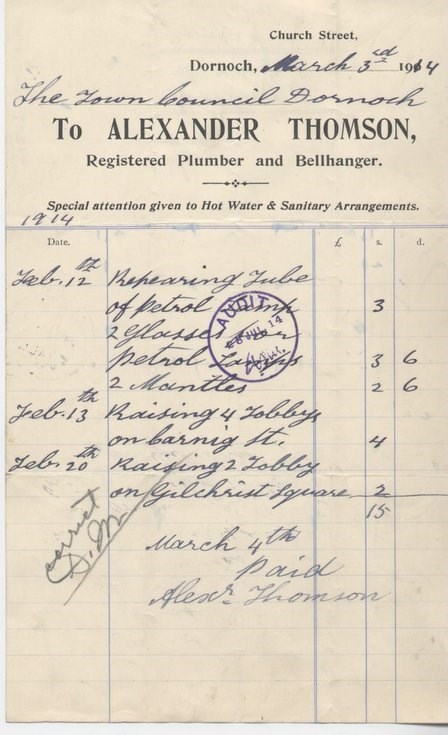 Church Street,
Dornoch, March 3rd 1914
The Town Council Dornoch
To ALEXANDER THOMSON,
Registered Plumber and Bellhanger.
Special attention given to Hot Water & Sanitary Arrangements.
1914
Date. £ s. d.
Feb. 12th Repearing Tube
of petrol Lamp 3
2 Glasses for
petrol Lamps 3 6
2 Mantles 2 6
Feb. 13th Raising 4 Tobbys
on Carnig St. 4
Feb. 20th Raising 2 Tobby
on Gilchrist Square 2
15
AUDIT
JUL 14
March 4th
Paid
Alexr. Thomson
correct